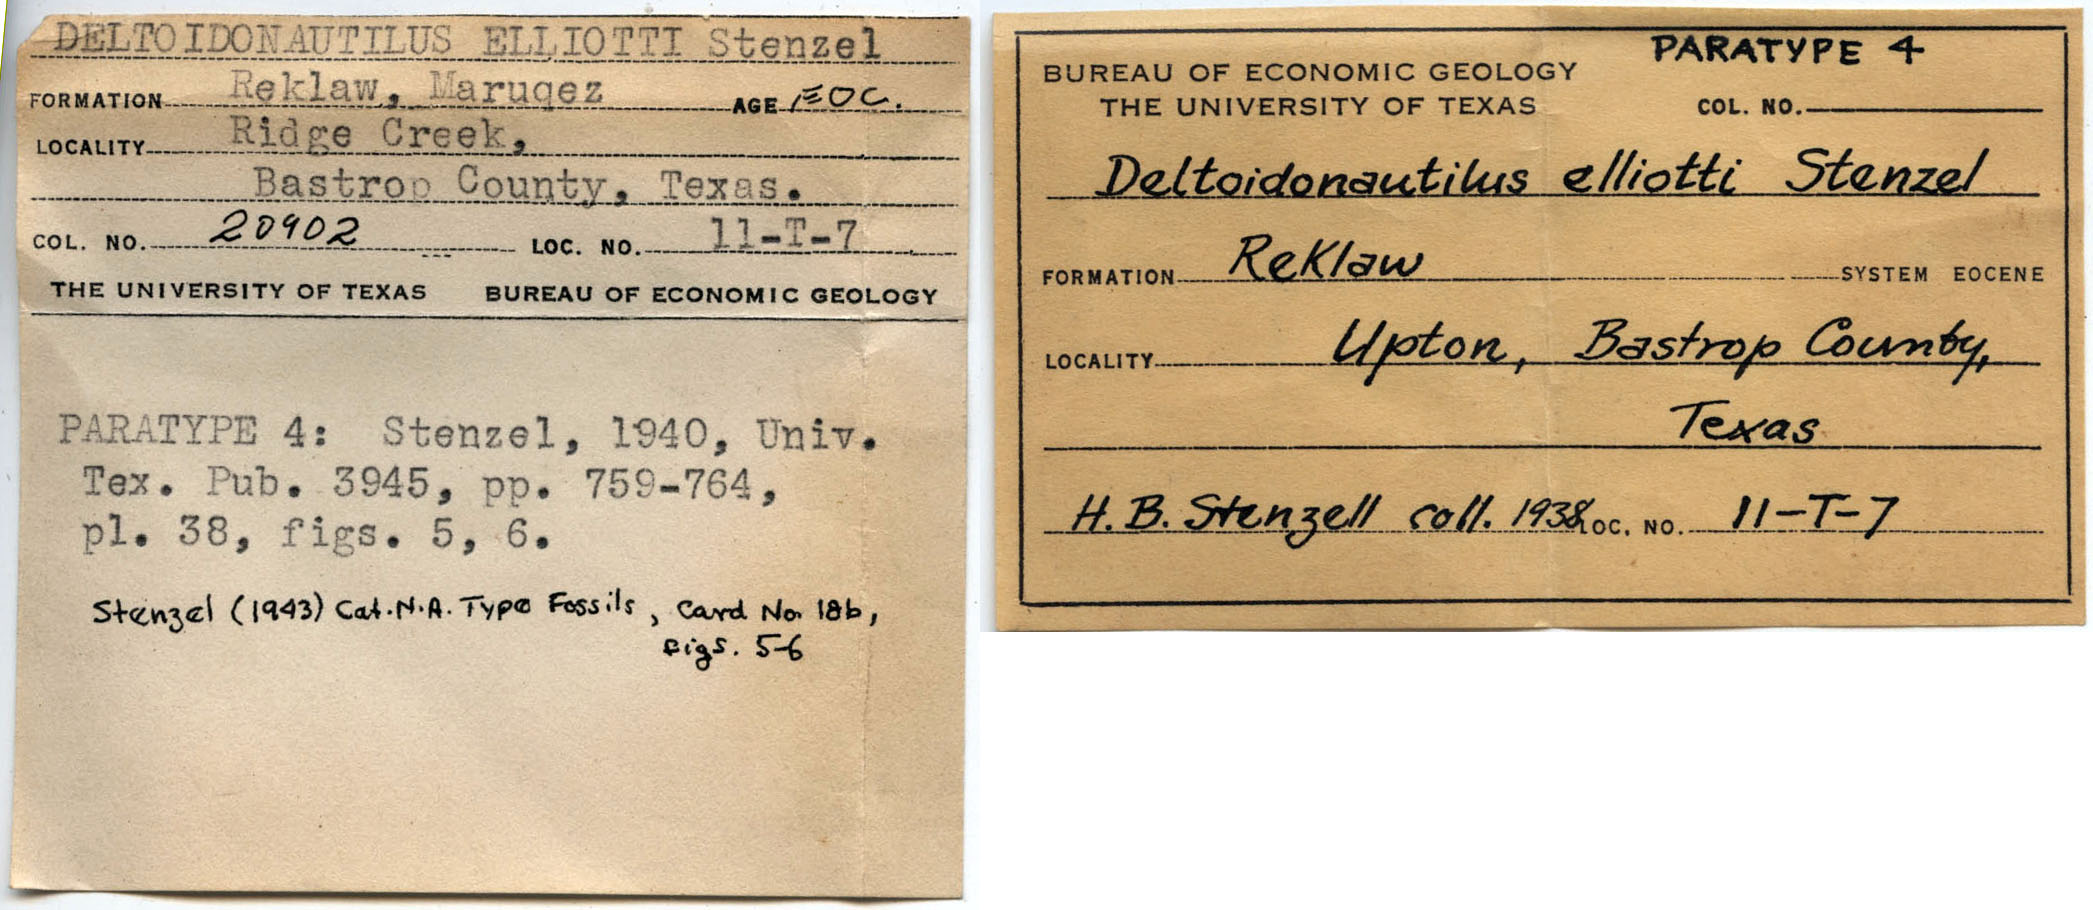 DELTOIDONAUTILUS ELLIOTTI Stenzel
FORMATION Reklaw, Maruqez AGE EOC.
LOCALITY Ridge Creek,
Bastrop County, Texas.
COL. NO. 20902 LOC. NO. 11-T-7
THE UNIVERSITY OF TEXAS BUREAU OF ECONOMIC GEOLOGY
PARATYPE 4: Stenzel, 1940, Univ.
Tex. Pub. 3945, pp. 759-764,
pl. 38, figs. 5, 6.
Stenzel (1943) Cat. N.A. Type Fossils, Card No. 18b,
figs. 5-6
PARATYPE 4
BUREAU OF ECONOMIC GEOLOGY
THE UNIVERSITY OF TEXAS COL. NO.
Deltoidonautilus elliotti Stenzel
FORMATION Reklaw SYSTEM EOCENE
LOCALITY Upton, Bastrop County,
Texas
H. B. Stenzell coll. 1938 LOC. NO. 11-T-7